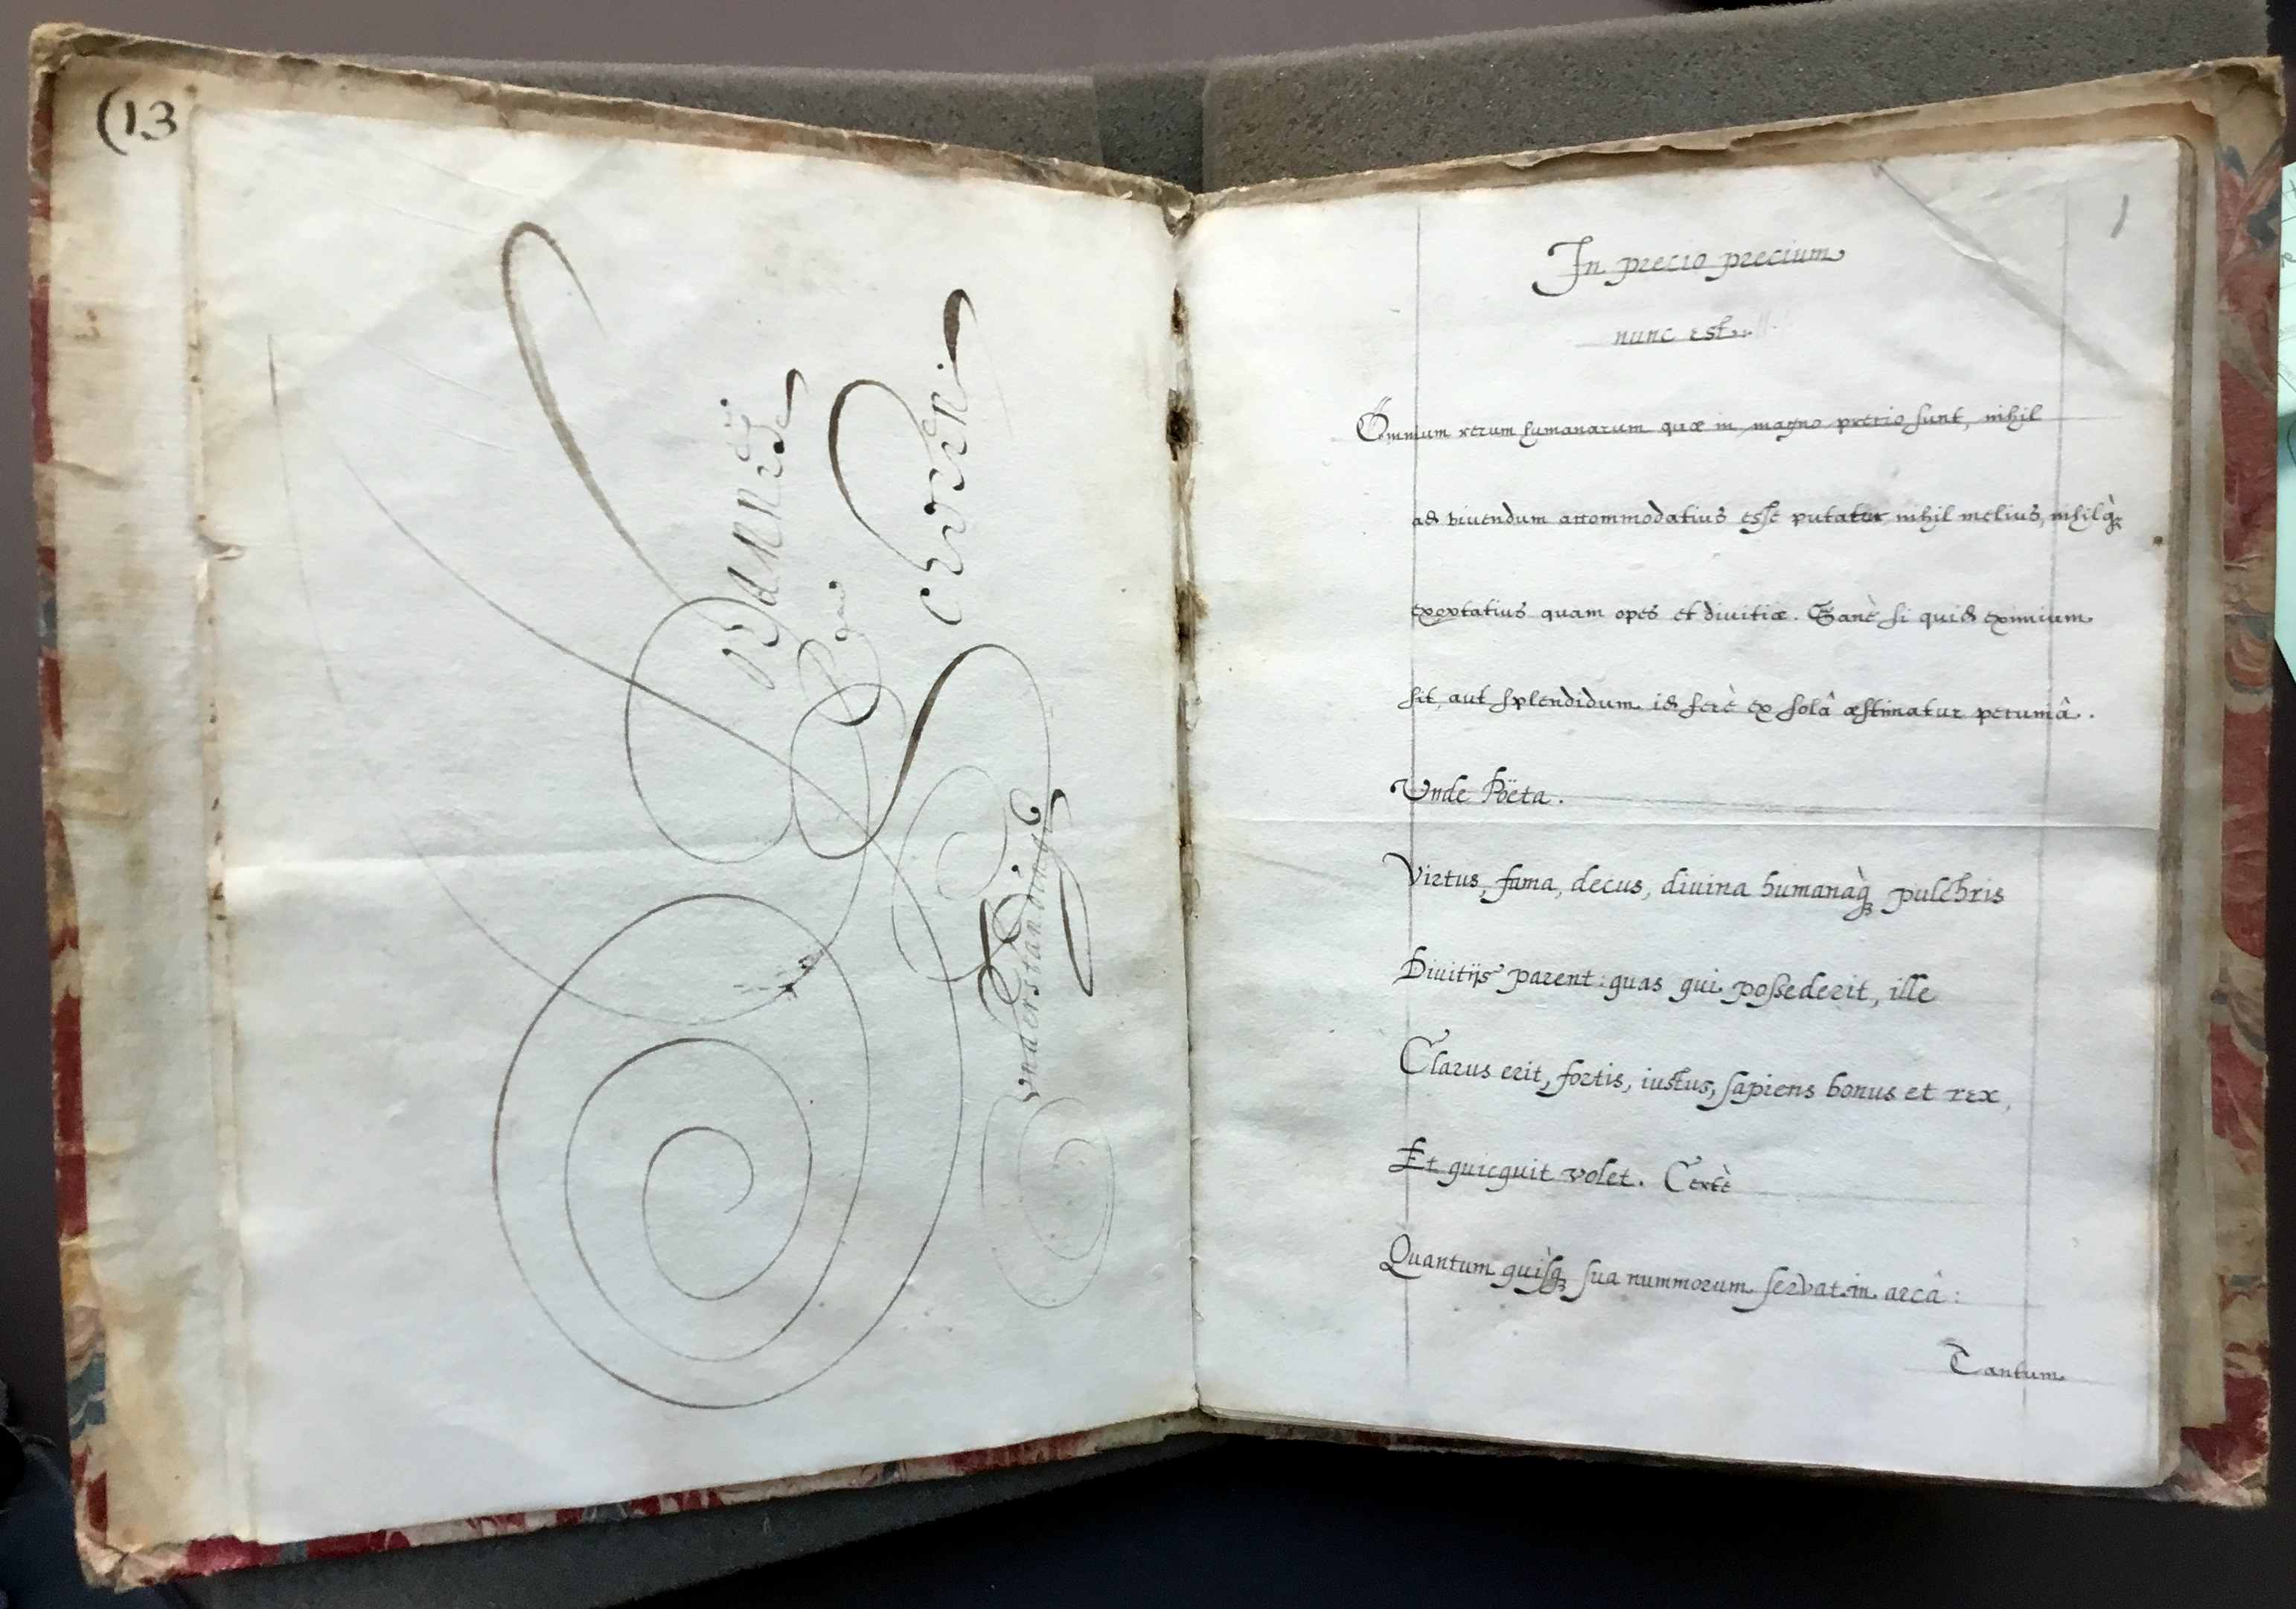 (13
understanding
1
In precio precium
nunc est.
Omnium rerum humanarum quæ in magno precio sunt, nihil
ad viuendum accommodatius esse putatur nihil melius, nihilq̀ꝫ
exoptatius quam opes et diuitiæ. Sanè si quid eximium
sit, aut splendidum id ferè ex solâ æstimatur pecuniâ.
Vnde Pöeta.
Virtus, fama, decus, diuina humanaq̀ꝫ pulchris
Diuitijs parent: quas qui possederit, ille
Clarus erit, fortis, iustus, sapiens bonus et rex,
Et quicquit volet. Certè
Quantum quisq̀ꝫ sua nummorum servat in arcâ:
Tantum